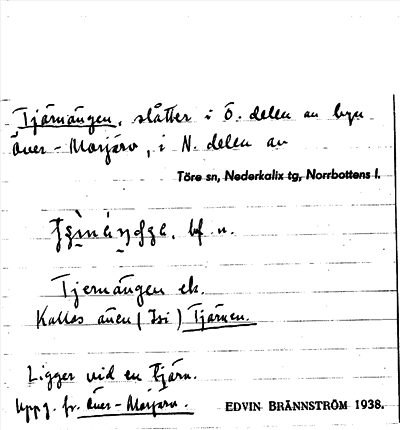 Tjärnängen, slåtter i Ö. delen av byn
Över-Morjärv, i N. delen av
Töre sn, Nederkalix tg, Norrbottens l.
bf. n.
Tjernängen ek.
Kallas även (Isi) Tjärnen.
Ligger vid en tjärn.
Uppg. fr. Över-Morjärv.
EDVIN BRÄNNSTRÖM 1938.